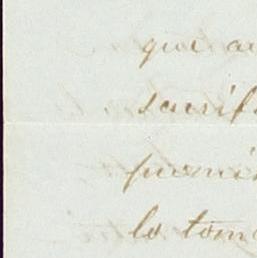 que au
sacrif
premiè
la tom